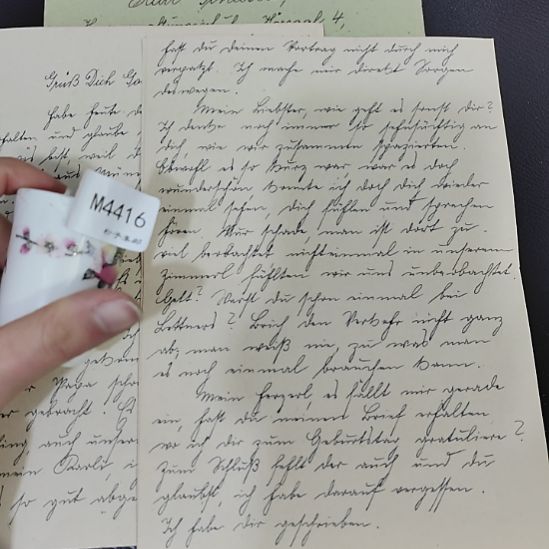 Grüß Dich Go
habe heute d
halten und glaube
bist, weil d
Papa schr
gebracht.
ling auch unser
mein Karli, i
so gut abge
hast du deinen Vortrag nicht durch mich
verpatzt. Ich mache mir direkt Sorgen
deswegen.
Mein Liebster, wie geht es sonst Dir?
Ich denke noch immer so sehnsüchtig an
dich, wie wir zusammen spazierten.
Obwohl es so kurz war war es doch
wunderschön konnte ich doch dich wieder
einmal sehen, dich fühlen und sprechen
hören. Nur schade, man ist dort zu
viel beobachtet nichteinmal in unserem
Zimmerl fühlten wir uns unbeobachtet.
Gelt? Warst du schon einmal bei
? Brich den Verkehr nicht ganz
ab, man weiß nie, zu was man
es noch einmal brauchen kann.
Mein Herzerl, es fällt mir gerade
ein, hast du meinen Brief erhalten
wo ich dir zum Geburtstag gratuliere?
Zum Schluß fehlt der auch und du
glaubst, ich habe darauf vergessen.
Ich habe dir geschrieben.
M4416